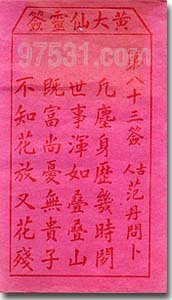 黃大仙靈簽
97531.com
第八十三簽
古人范丹問卜
凡塵身歷幾時閒
世事渾如疊疊山
既富尚憂無貴子
不知花放又花殘